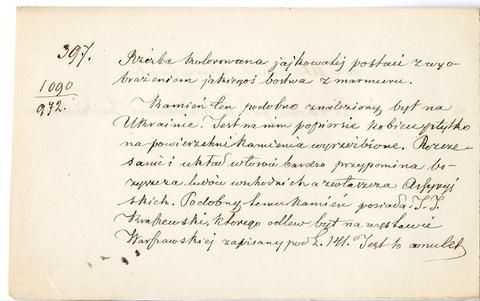 397.
1090
972.
Rzeźba kolorowana jajkowatej postaci z wyo-
brażeniem jakiegoś bóstwa z marmuru.
Kamień ten podobno znaleziony był na
Ukrainie. Jest na nim popiersie kobiece płytko
na powierzchni kamienia wyrzeźbione. Rozcze-
sanie i układ włosów bardzo przypomina bo-
żyszcza ludów wschodnich a zwłaszcza Assyryj-
skich. Podobny temu kamień posiada J. I.
Kraszewski, którego odlew był na wystawie
Warszawskiej zapisany pod L. 141. Jest to amulet